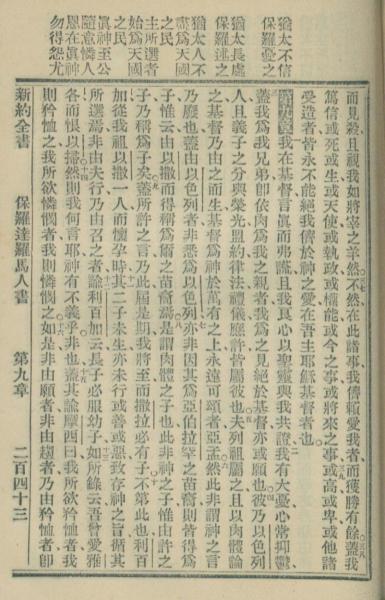 猶太不信
保羅憂之
猶太長處
保羅述之
猶太人不
盡爲天國
之民
主所選者
始爲天國
之民
眞神至公
隨意憐人
恩在眞神
勿得怨尤
而見殺且視我如將宰之羊然不然在此諸事我儕賴愛我者而獲勝有餘蓋我
篤信或死或生或天使或執政或權能或今之事或將來之事或高或卑或他諸
受造者皆永不能絕我儕於神之愛在吾主耶穌基督者也
第九章我在基督言眞而弗謊且我良心以聖靈與我共證我有大憂心常抑鬱
蓋我爲我兄弟卽依肉爲我之親者我爲之見絕於基督亦或願也彼乃以色列
人且義子之分與榮光盟約律法禮儀應許皆屬彼也夫列祖屬之且以肉體論
之基督乃由之而生基督爲神於萬有之上永遠可頌者亞孟然此非謂神之言
乃廢也蓋由以色列者非悉爲以色列亦非因其爲亞伯拉罕之苗裔則皆得爲
子惟云由以撒而得稱爲爾之苗裔焉是謂肉體之子也此非神之子惟由許之
子乃稱爲子矣蓋所許之言乃此屆是期我將至而撒拉必有子不第此也利百
加從我祖以撒一人而懷孕時其二子未生亦未行或善或惡致存神之旨循其
所選焉非由夫行乃由召之者諭利百加云長子必服幼子如所錄云吾曾愛雅
各而恨以掃然則我何言耶神有不義乎非也蓋其諭摩西曰我所欲矜恤者我
則矜恤之我所欲憐憫者我則憐憫之如是非由願者非由趨者乃由矜恤者卽
新約全書 保羅達羅馬人書 第九章 二百四十三